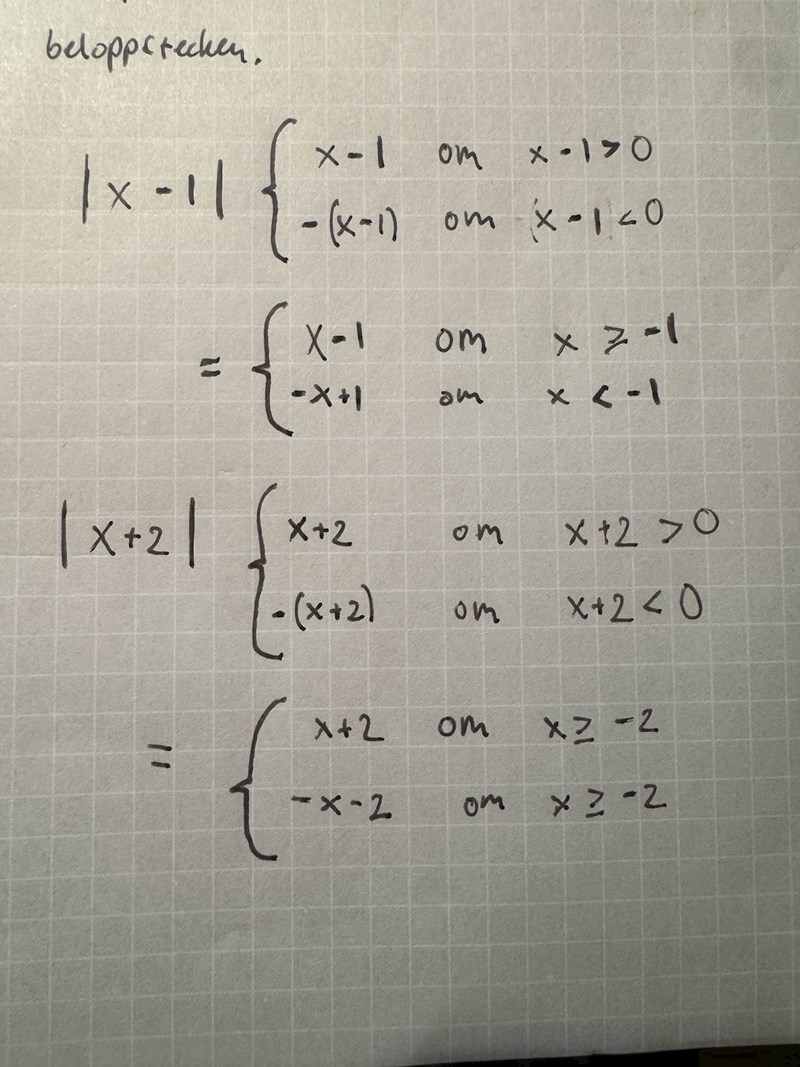 beloppstecken.
|x-1| { x-1 om x-1>0
-(x-1) om x-1<0
= { x-1 om x ≥ -1
-x+1 om x < -1
|x+2| { x+2 om x+2 >0
-(x+2) om x+2 < 0
= { x+2 om x ≥ -2
-x-2 om x ≥ -2